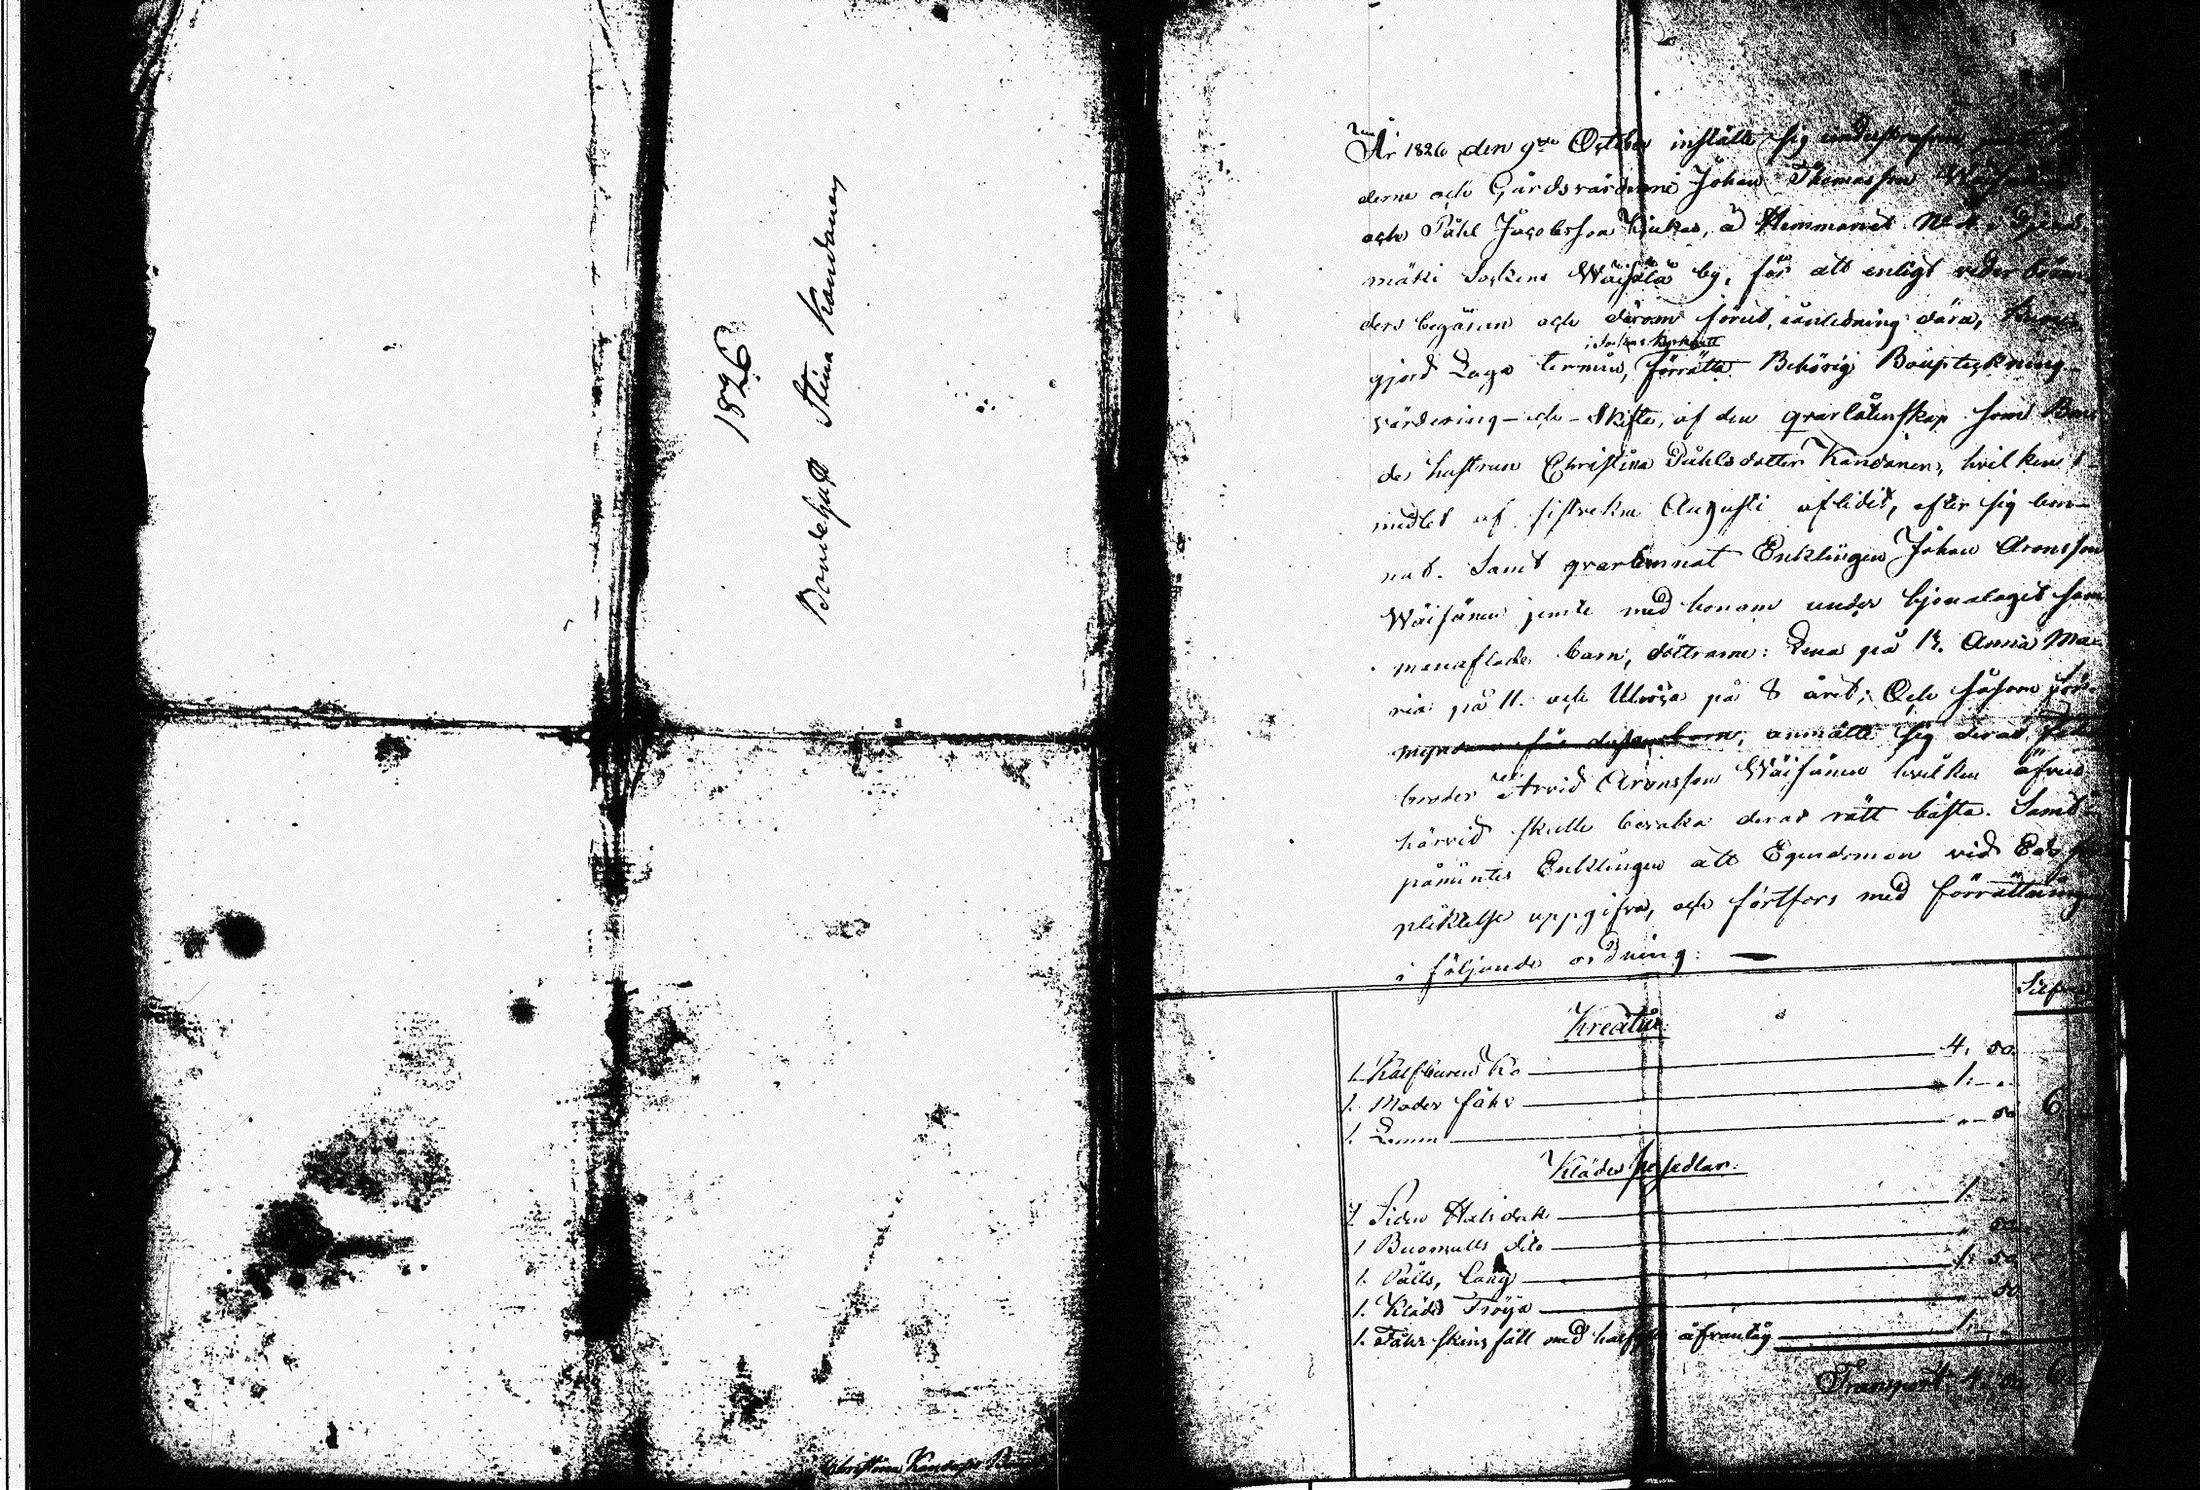 1826
Bondehust Stina Kandanen
Christina
År 1826 den 9de October inställte sig
derne och Gårdsvärderne Johan Thomasson
och Påhl Jacobsson Kukas, å Hemmanet No
mäki Sockens Wäisälä by, för att enligt
ders begäran och därom förut, i anledning däraf,
i Sockne Kyrkan
gjord Laga termin, förrätta Behörig Bouptekning
värdering - och - Skifte, af den qvarlåtenskap som
de hustrun Christina Påhlsdotter Kandanen, hvilken
medlet af sistvekne Augusti aflidit, efter sig lem-
nat. Samt qvarlemnat Enklingen Johan Aronsson
Wäisänen jemte med honom under hjonalaget sam
manaflade barn, döttrarne: Lena på 13. Anna Ma-
ria på 11. och Ulrica på 8 året; Och såsom för-
myndare för dessa barn, anmälte sig deras Fader
broder Arvid Aronsson Wäisänen hvilken äfven
härvid skulle bevaka deras rätt bästa. Samt
påmintes Enklingen att Egendomen vid Eds
pliktelse uppgifva, och fortfors med förrättning
i följande ordning:
Silfver
Kreatur
1. Kalfburen Ko 4. 50.
1. Moder fåhr 1. - .
1. Lamm " 50 6
Kläders persedlar.
1. Siden Halsduk 1.
1 Buomulls dito " 50
1. Pälls, lång 1. 50
1. Kläde Tröija " 50
1. Fåhr skins fäll med 1.
Transport 6